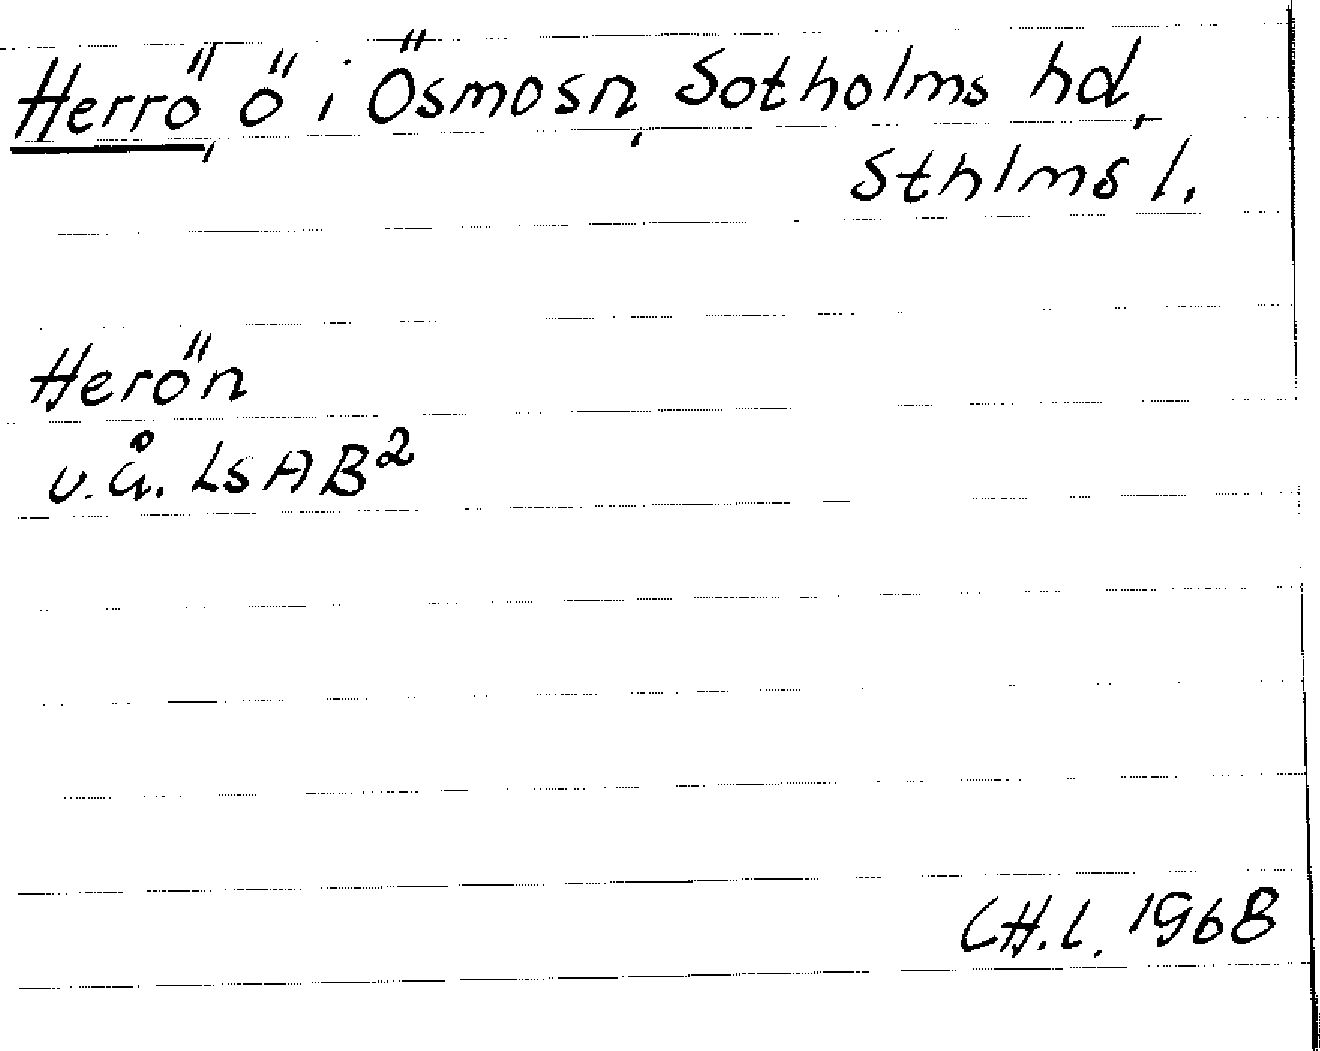 Herrö, ö i Ösmo sn, Sotholms hd,
Sthlms l.
Herön
u.å. LSA B2
C.H.L. 1968